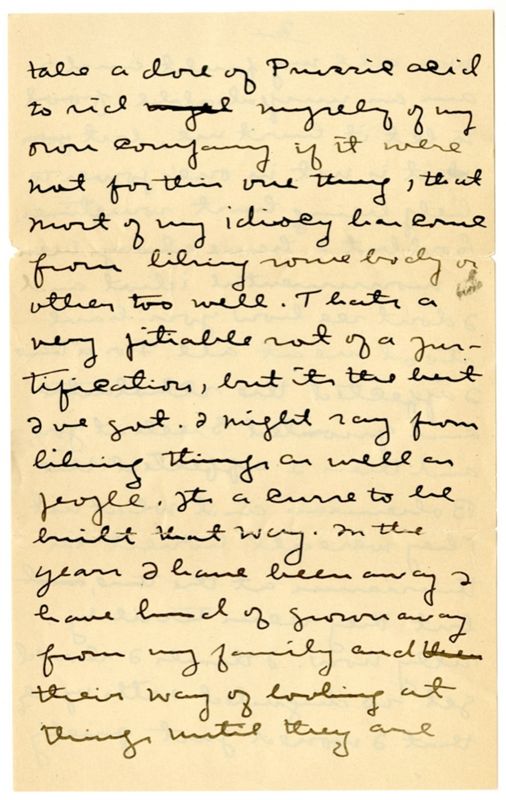 take a dose of Prussic acid
to rid mysel myself of my
own company if it were
not for this one thing, that
most of my idiocy has come
from liking somebody or
other too well. Thats a
very pitiable sort of a jus-
tification, but its the best
I've got. I might say from
liking things as well as
people. Its a curse to be
built that way. In the
years I have been away I
have kind of grown away
from my family and
their way of looking at
things until they are